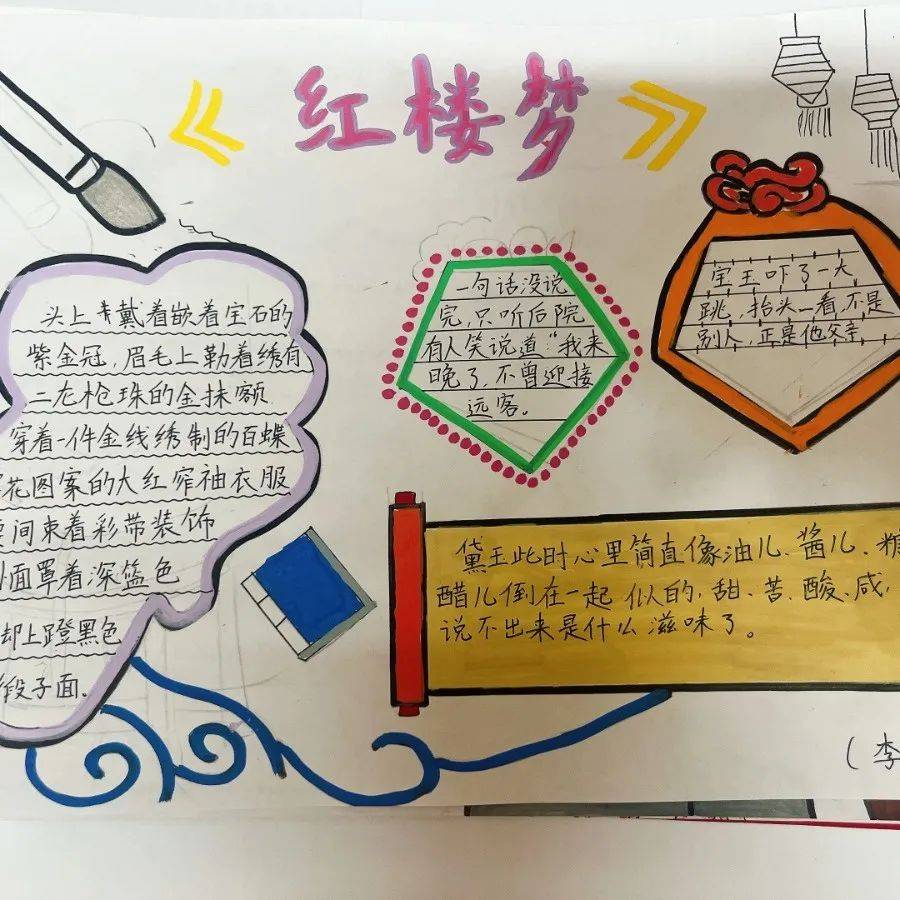 《红楼梦》
头上戴着嵌着宝石的
紫金冠，眉毛上勒着绣有
二龙枪珠的金抹额
穿着一件金线绣制的百蝶
花图案的大红窄袖衣服
间束着彩带装饰
面罩着深蓝色
却上蹬黑色
段子面。
一句话没说
完，只听后院
有人笑说道“我来
晚了，不曾迎接
远客。
宝玉吓了一大
跳，抬头一看，不是
别人，正是他父亲
黛玉此时心里简直像油儿、酱儿、糖
醋儿倒在一起似的，甜、苦、酸、咸，
说不出来是什么滋味了。
（李